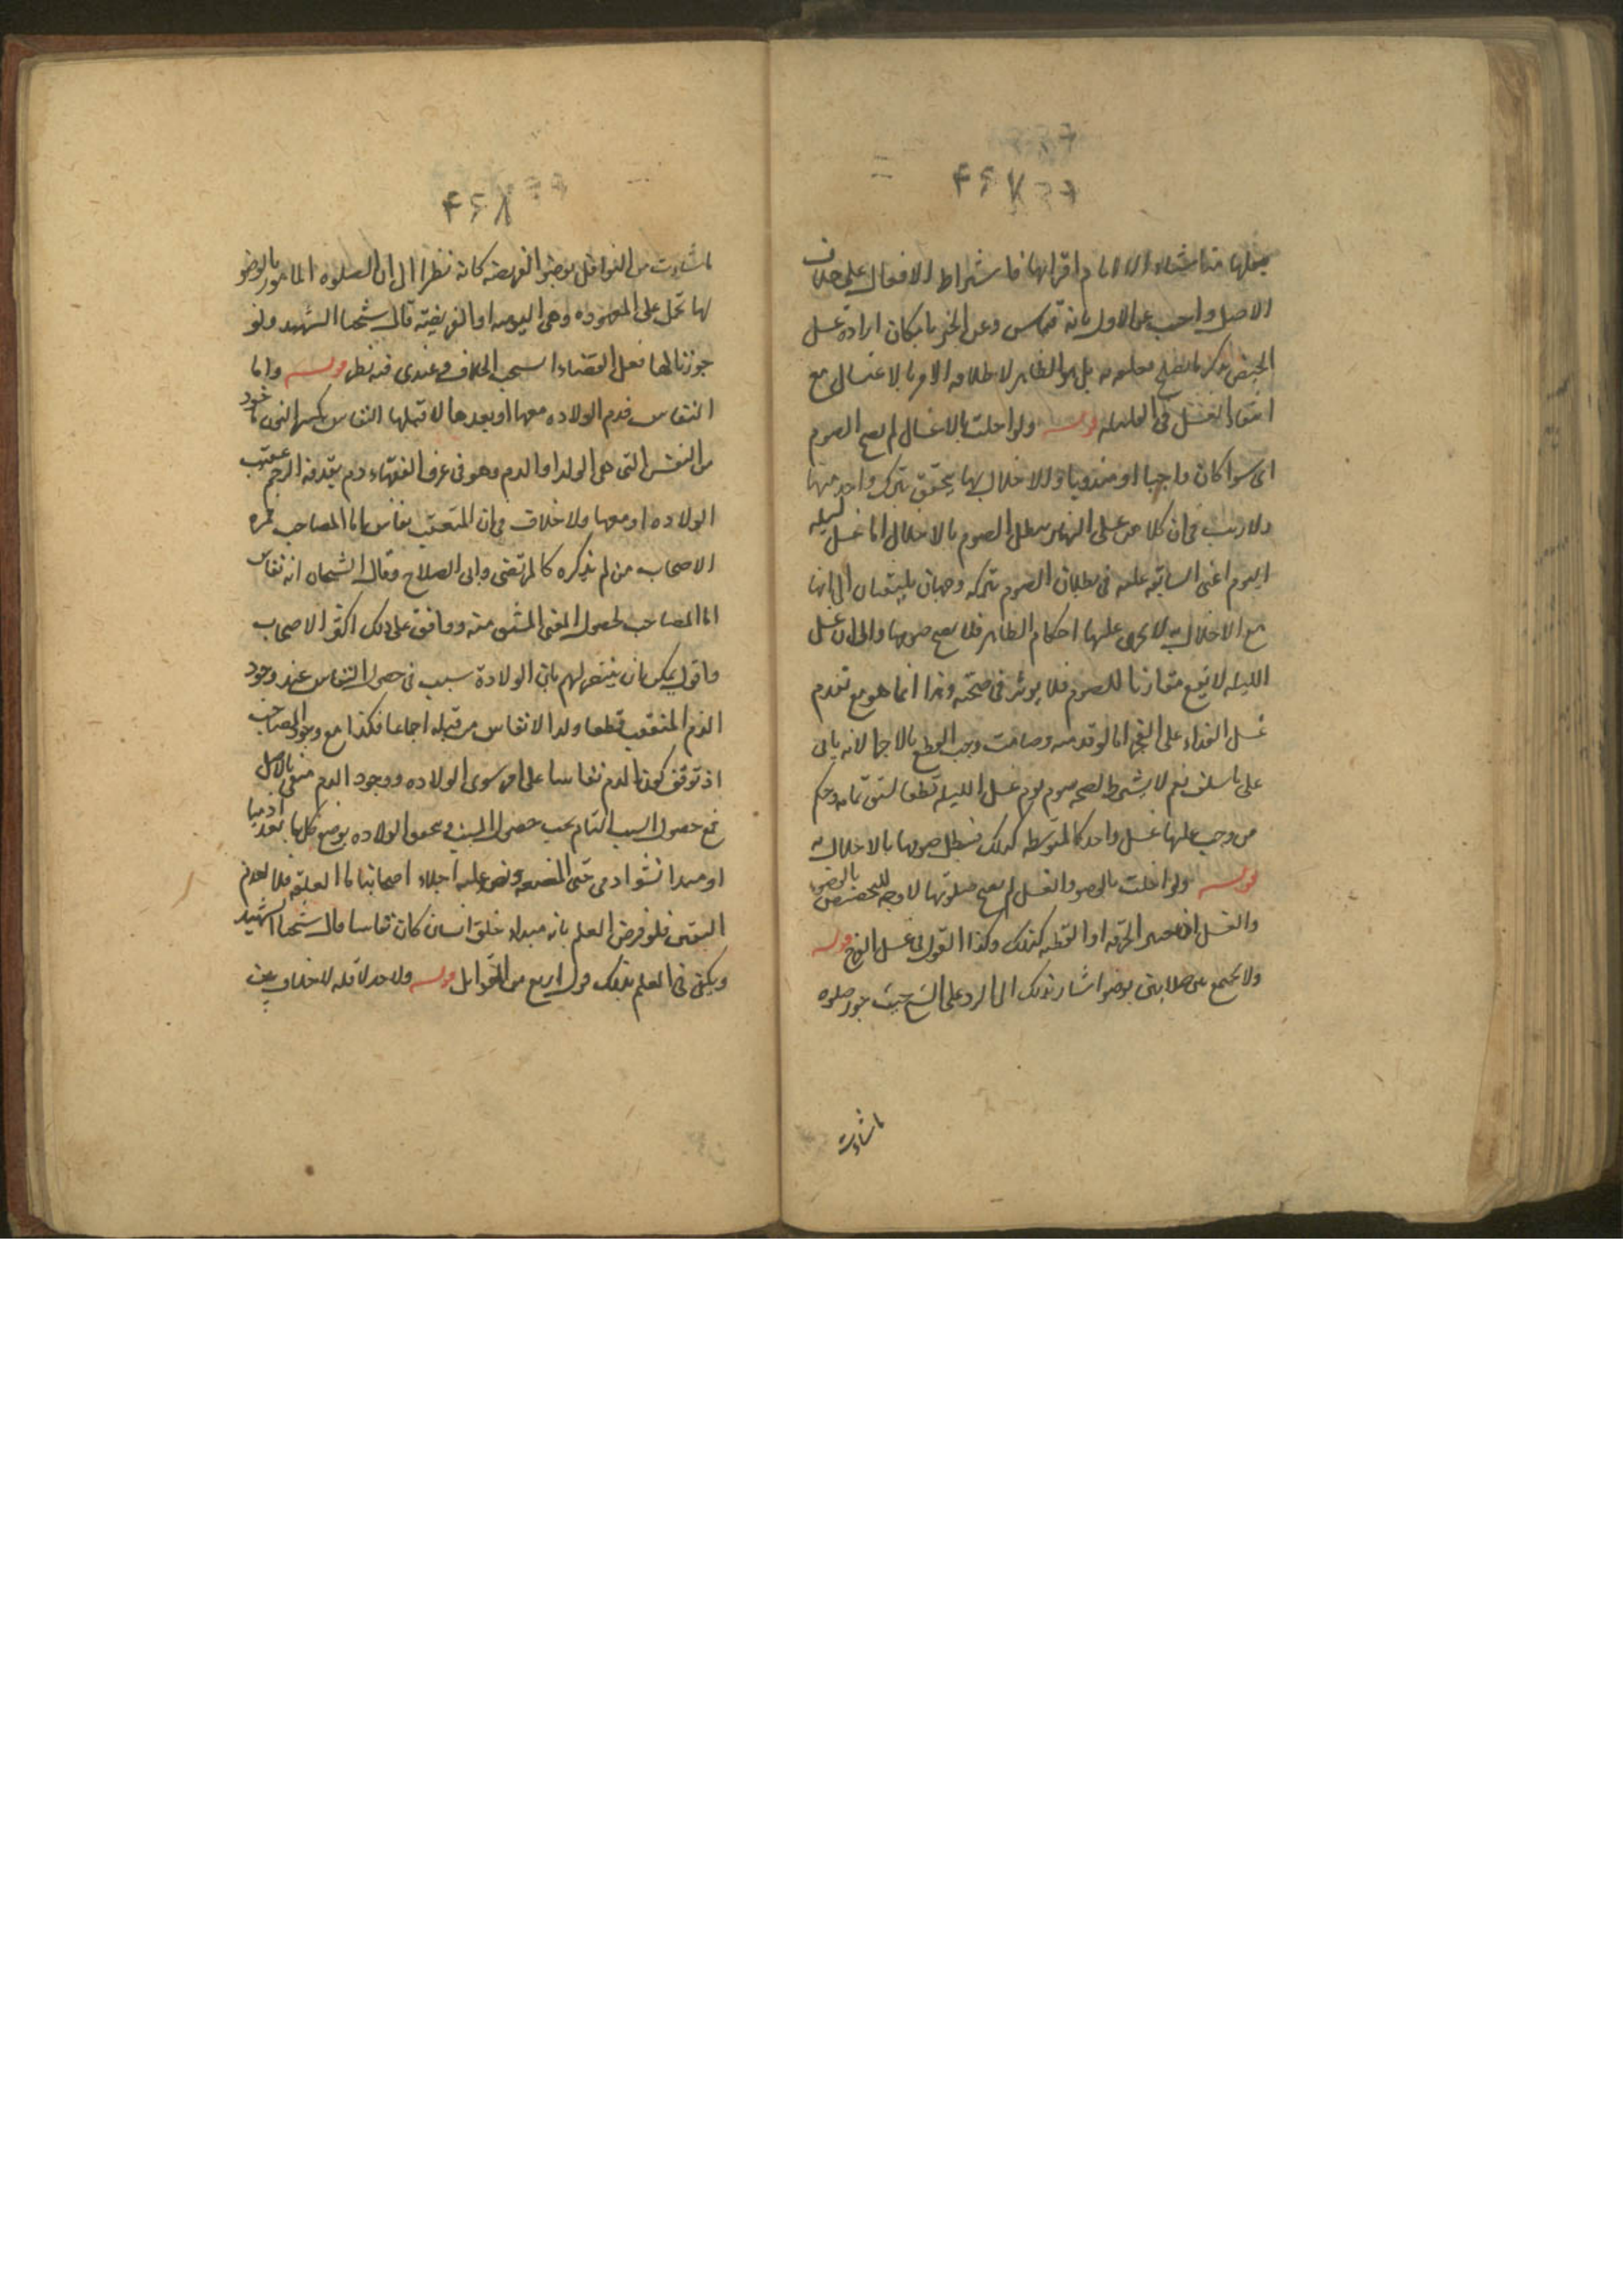 الاصل واجيب عن الاول بانه قياس وعن الخبر بامكان ارادة غسل
انتفاء الغسل في القليله قوله ولو اخلت بالاغسال لم يصح الصوم
اى سوا كان واجبا او مندوبا والاخلال بها يتحقق بترك واحد منها
ولا ريب فى ان كلا من غسلى النهار يبطل الصوم بالاخلال اما غسل ليله
اليوم اعنى السابقه عليه فى بطلان الصوم بتركه وجهان يلتفتان الى انها
مع الاخلال به لا يجرى عليها احكام الطاهر فلا يصح صومها والى ان غسل
الليله لا يقع مقارنا للصوم فلا يوثر فى صحته وهذا انما هو مع تقدم
غسل الغداه على الفجر اما لو قدمته وصامت وجب القطع بالاجزا لانه ياتى
على ما سلف نعم لا يشترط لصحه صوم يوم غسل الليله قطعا لسبق تمامه وحكم
من وجب عليها غسل واحد كالمتوسطه كذلك فيبطل صومها بالاخلال به
قوله ولو اخلت بالوضو والغسل لم يصح صلوتها لا وجه للتخصيص بالوضو
والغسل اذ تغيير الخرقه او القطنه كذلك وكذا القول فى غسل الفرج قوله
ولا تجمع بين صلاتين بوضو اشار بذلك الى الرد على الشيخ حيث جوز صلوه
ماشاءت
ماشاءت من النوافل بوضو الفريضه كانه نظرا الى ان الصلوه المامور بالوضو
لها تحمل على المعهوده وهى اليوميه او الفريضه قال شيخنا الشهيد ولو
جوزنا لها فعل القضاء انسحب الخلاف وعندى فيه نظر قوله واما
النفاس فدم الولاده معها او بعدها لا قبلها النفاس بكسر النون ماخوذ
من النفس التى هى الولد او الدم وهو فى عرف الفقهاء دم يقذفه الرحم عقيب
الولاده او معها ولا خلاف فى ان المتعقب نفاس اما المصاحب فمن
الاصحاب من لم يذكره كالمرتضى وابى الصلاح وقال الشيخان انه نفاس
اما المصاحب لحصول المعنى المشتق منه ووافق على ذلك اكثر الاصحاب
واقول يمكن ان ينتصر لهم بان الولادة سبب فى حصول النفاس عند وجود
الدم المتعقب قطعا ولذا لا نفاس من قبله اجماعا فكذا مع وجود المصاحب
اذ توقف كون الدم نفاسا على امر سوى الولاده ووجود الدم منفى بالاصل
فمع حصول السبب التام يجب حصول المسبب وتحقق الولاده بوضع كل ما يعد ادميا
او مبدا نشو ادمى حتى المضغه ونص عليه اجلاء اصحابنا اما العلقه فلا لعدم
اليقين فلو فرض العلم بانه مبداء خلق انسان كان نفاسا قال شيخنا الشهيد
ويكفى فى العلم بذلك قول اربع من القوابل قوله ولا حد لاقله لا خلاف بين